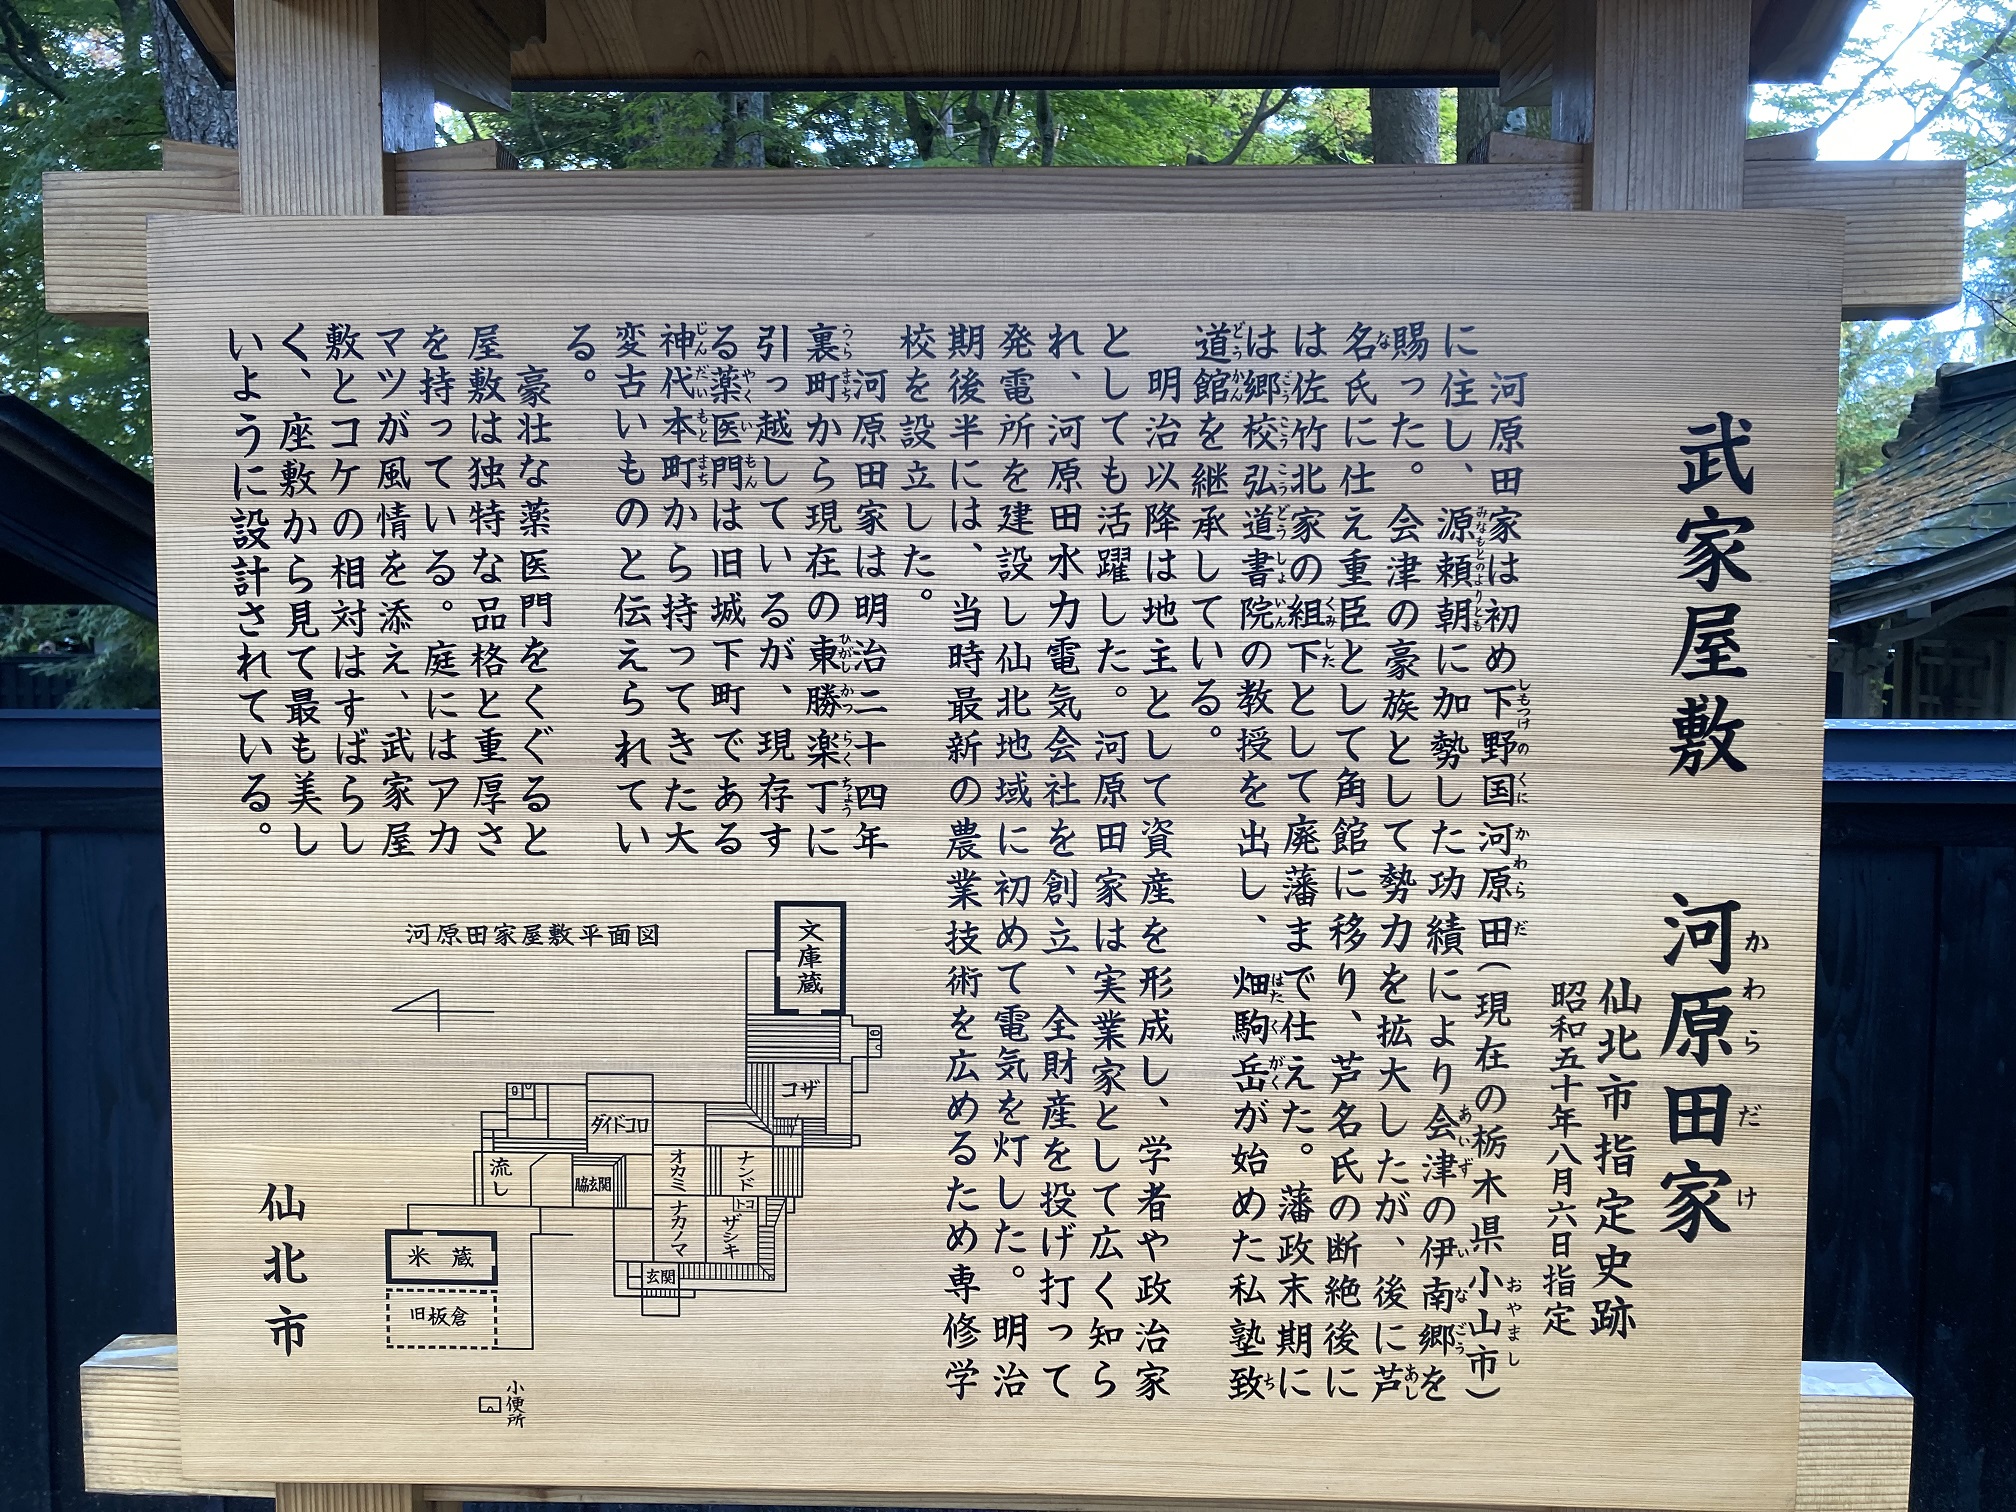 武家屋敷 河原田家
かわらだけ
仙北市指定史跡
昭和五十年八月六日指定
河原田家は初め下野国河原田(現在の栃木県小山市)
に住し、源頼朝に加勢した功績により会津の伊南郷を
賜った。会津の豪族として勢力を拡大したが、後に芦
名氏に仕え重臣として角館に移り、芦名氏の断絶後に
は佐竹北家の組下として廃藩まで仕えた。藩政末期に
は郷校弘道書院の教授を出し、畑駒岳が始めた私塾致
道館を継承している。
明治以降は地主として資産を形成し、学者や政治家
としても活躍した。河原田家は実業家として広く知ら
れ、河原田水力電気会社を創立、全財産を投げ打って
発電所を建設し仙北地域に初めて電気を灯した。明治
期後半には、当時最新の農業技術を広めるため専修学
校を設立した。
河原田家は明治二十四年
裏町から現在の東勝楽丁に
引っ越しているが、現存す
る薬医門は旧城下町である
神代本町から持ってきた大
変古いものと伝えられてい
る。
豪壮な薬医門をくぐると
屋敷は独特な品格と重厚さ
を持っている。庭にはアカ
マツが風情を添え、武家屋
敷とコケの相対はすばらし
く、座敷から見て最も美し
いように設計されている。
河原田家屋敷平面図
文庫蔵
コザ
ダイドコロ
オカミ
ナンド
流し
脇玄関
トコ
ナカノマ
ザシキ
玄関
米蔵
旧板倉
小便所
仙北市